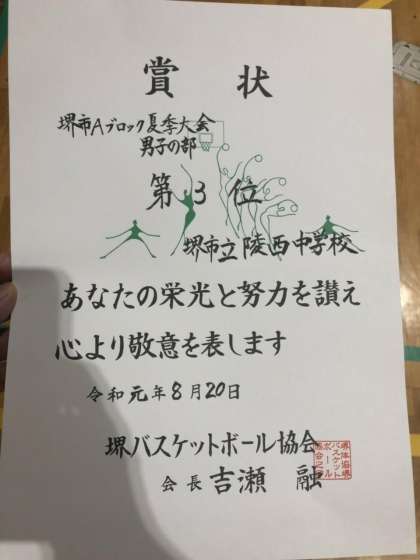 賞状
堺市Aブロック夏季大会
男子の部
第3位
堺市立陵西中学校
あなたの栄光と努力を讃え
心より敬意を表します
令和元年8月20日
堺バスケットボール協会
会長 吉瀬 融